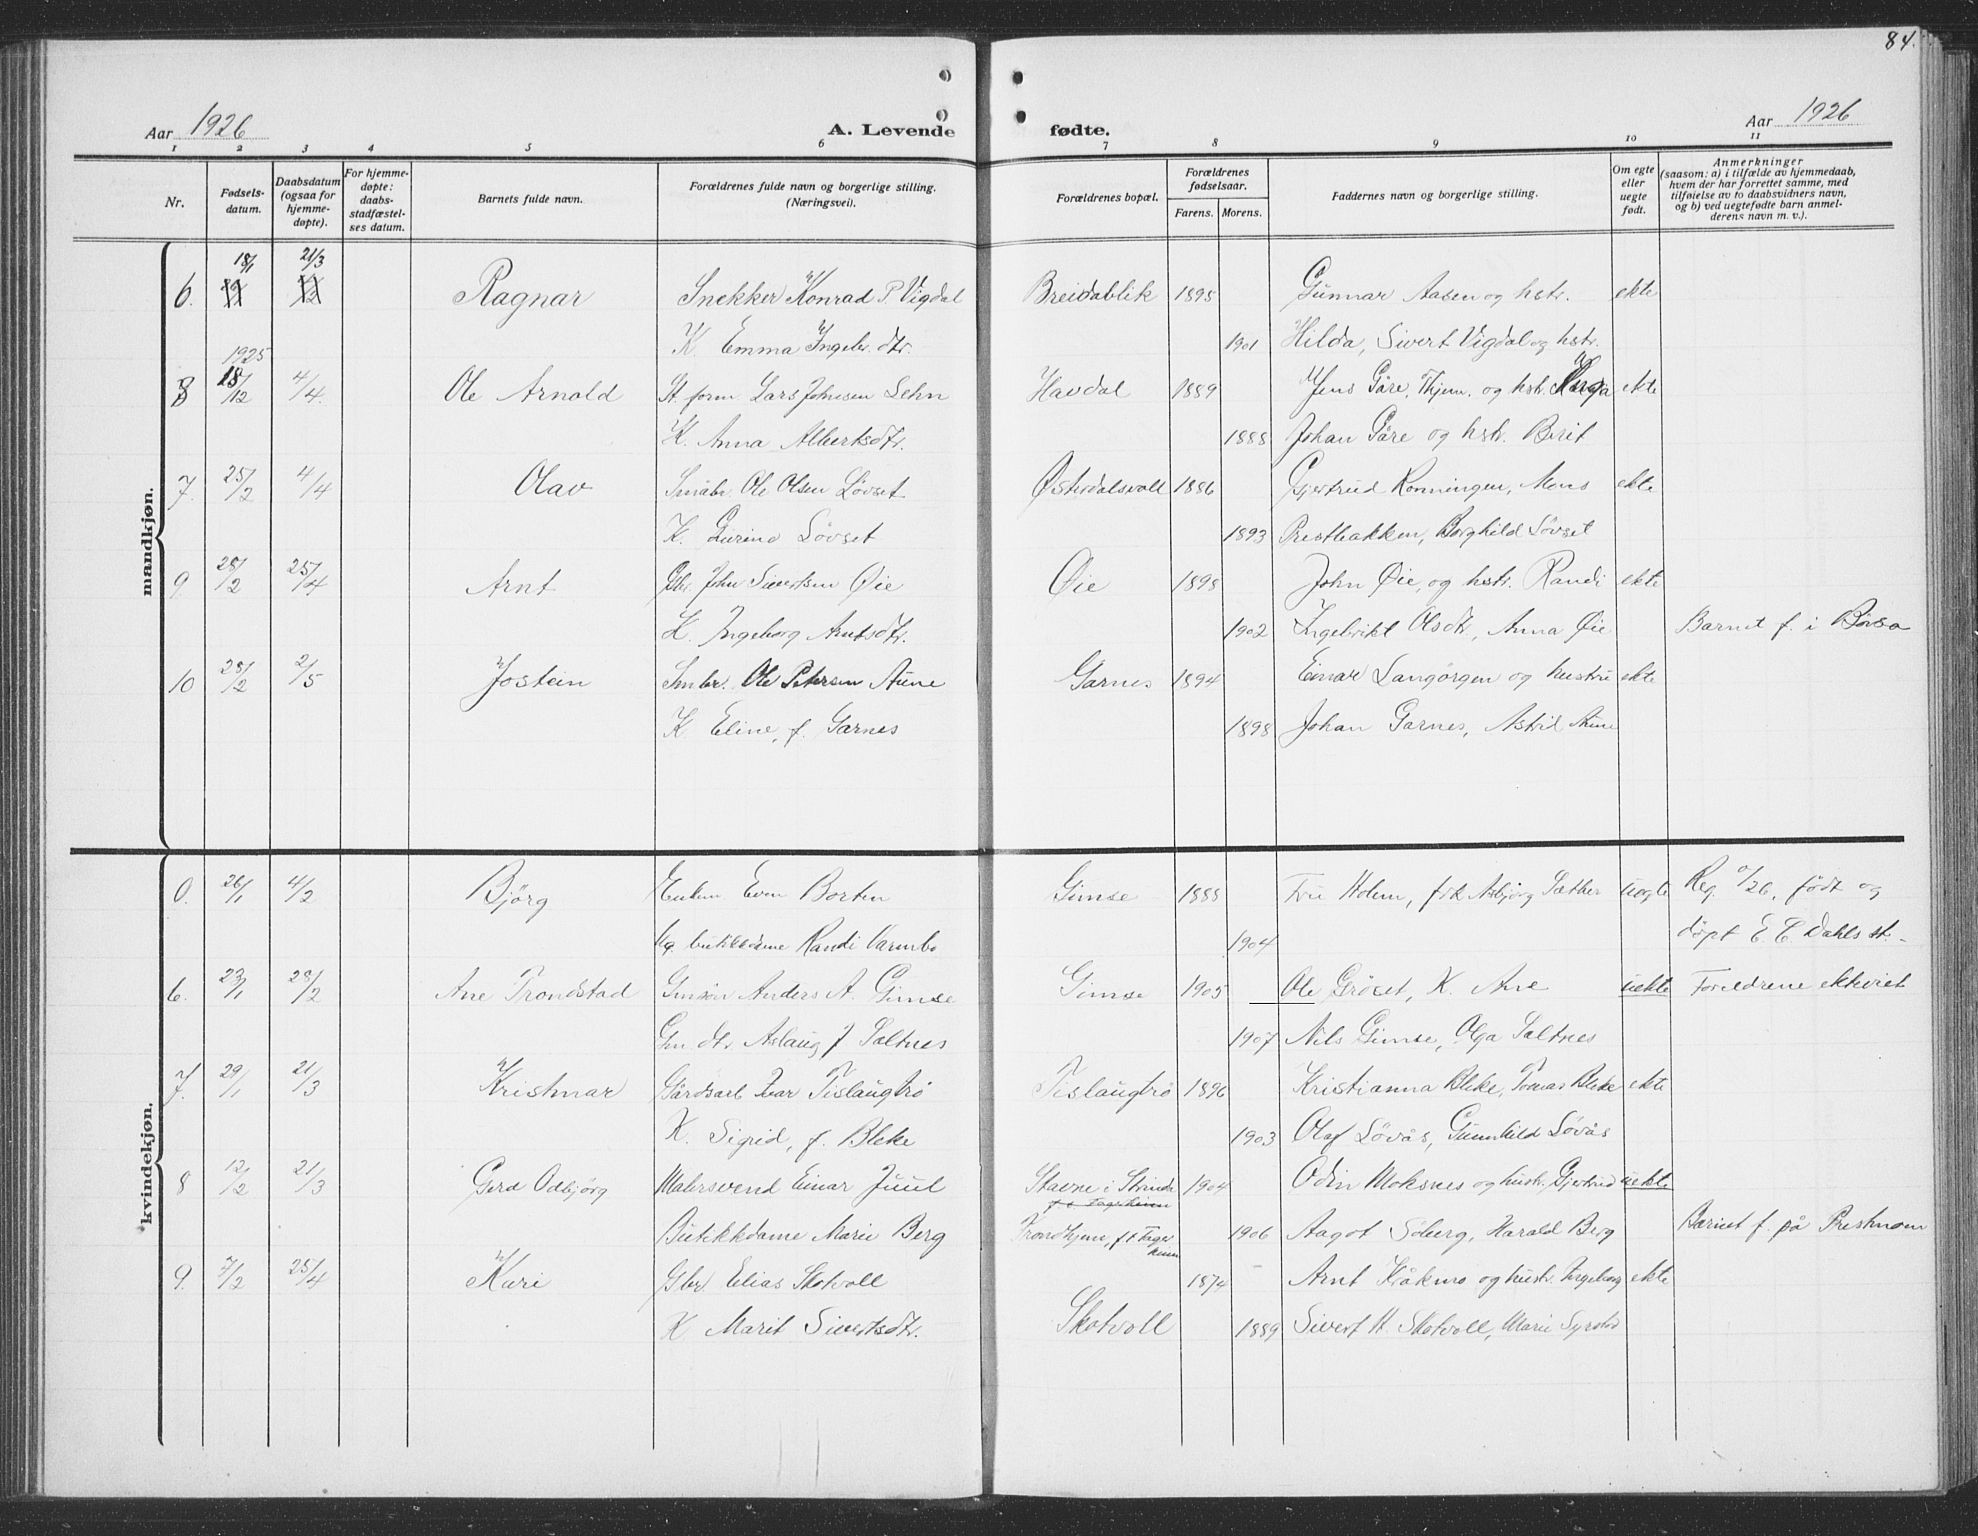 84.
Aar 1926
A. Levende
fødte.
Aar 1926
1 2 3 4 5 6 7 8 9 10 11
Nr.
Fødsels-
datum.
Daabsdatum
(ogsaa for
hjemme-
døpte).
For hjemme-
døpte:
daabs-
stadfæstel-
ses datum.
Barnets fulde navn.
Forældrenes fulde navn og borgerlige stilling.
(Næringsvei).
Forældrenes bopæl.
Forældrenes
fødselsaar.
Farens. Morens.
Faddernes navn og borgerlige stilling.
Om egte
eller
uegte
født.
Anmerkninger
(saasom: a) i tilfælde av hjemmedaab,
hvem der har forrettet samme, med
tilføielse av to daabsvidners navn,
og b) ved uegtefødte barn anmel-
derens navn m. v.).
mandkjøn.
18/1 21/3
6. Ragnar Snekker Konrad P. Vigdal Breidablik 1895 Gunnar Aasen og hstr. ekte
K. Emma Ingebr.dtr. 1901 Hilda, Sivert Vigdal og hstr.
1925
8 18/12 4/4. Ole Arnold St. form Lars Johnsen Lehn Havdal 1889 Jens Gåre, Thjem. og hstr. ekte
K. Anna Albertsdtr. 1888 Johan Gåre og hstr. Berit
7. 25/2 4/4 Olav Småbr. Ole Olsen Løvset Østerdalsvoll 1886 Gjertrud Ronningen, Mons ekte
K. Gurine Løvset 1893 Prestbakken, Borghild Løvset
9 28/2 25/4 Arnt Gbr. John Sivertsen Øie Øie 1898 John Øie, og hstr. Randi ekte
K. Ingeborg Arntsdtr. 1902 Ingebrikt Olsdtr., Anna Øie Barnet f. i Børsa
10 28/2 2/5 Jostein Smbr. Ole Petersen Aune Garnes 1894 Einar Langørgen og hustru ekte
K Eline, f. Garnes 1898 Johan Garnes, Astrid Aune
kvindekjøn.
0. 26/1 4/2 Bjørg Enkem Even Borten Gimse 1888 Fru Holem, frk Asbjørg Sæther uegte Reg. 0/26, født og
ug. butikkdame Randi Varmbo 1904 døpt E. C. Dahls st.-
6. 23/1 28/2 Ane Trondstad Gmsøn Anders A. Gimse Gimse 1905 Ole Grøset, K. Ane uekte Foreldrene ekteviet
Gm. dtr Aslaug J Saltnes 1907 Nils Gimse, Olga Saltnes
7. 29/1 21/3 Kristmar Gårdsarb Ivar Tislaugbrø Tislaugbrø 1896 Kristianna Bleke, Tomas Bleke ekte
K. Sigrid, f. Bleke 1903 Olaf Løvås, Gunnhild Løvås
8 12/2 21/3 Gerd Odbjørg Malersvend Einar Juul Stavne i Strinda 1904 Odin Moksnes og hustr. Gjertrud uekte
Butikkdame Marie Berg Trondhjem, f. t. Fager
heim 1906 Aagot Søberg, Harald Berg Barnet f. på Prestmoen
9. 7/2 25/4 Kari Gbr. Elias Skotvoll Skotvoll 1874 Arnt Kråkmo og hustr. Ingeborg ekte
K Marit Sivertsdtr. 1889 Sivert H. Skotvoll, Marie Syrstad